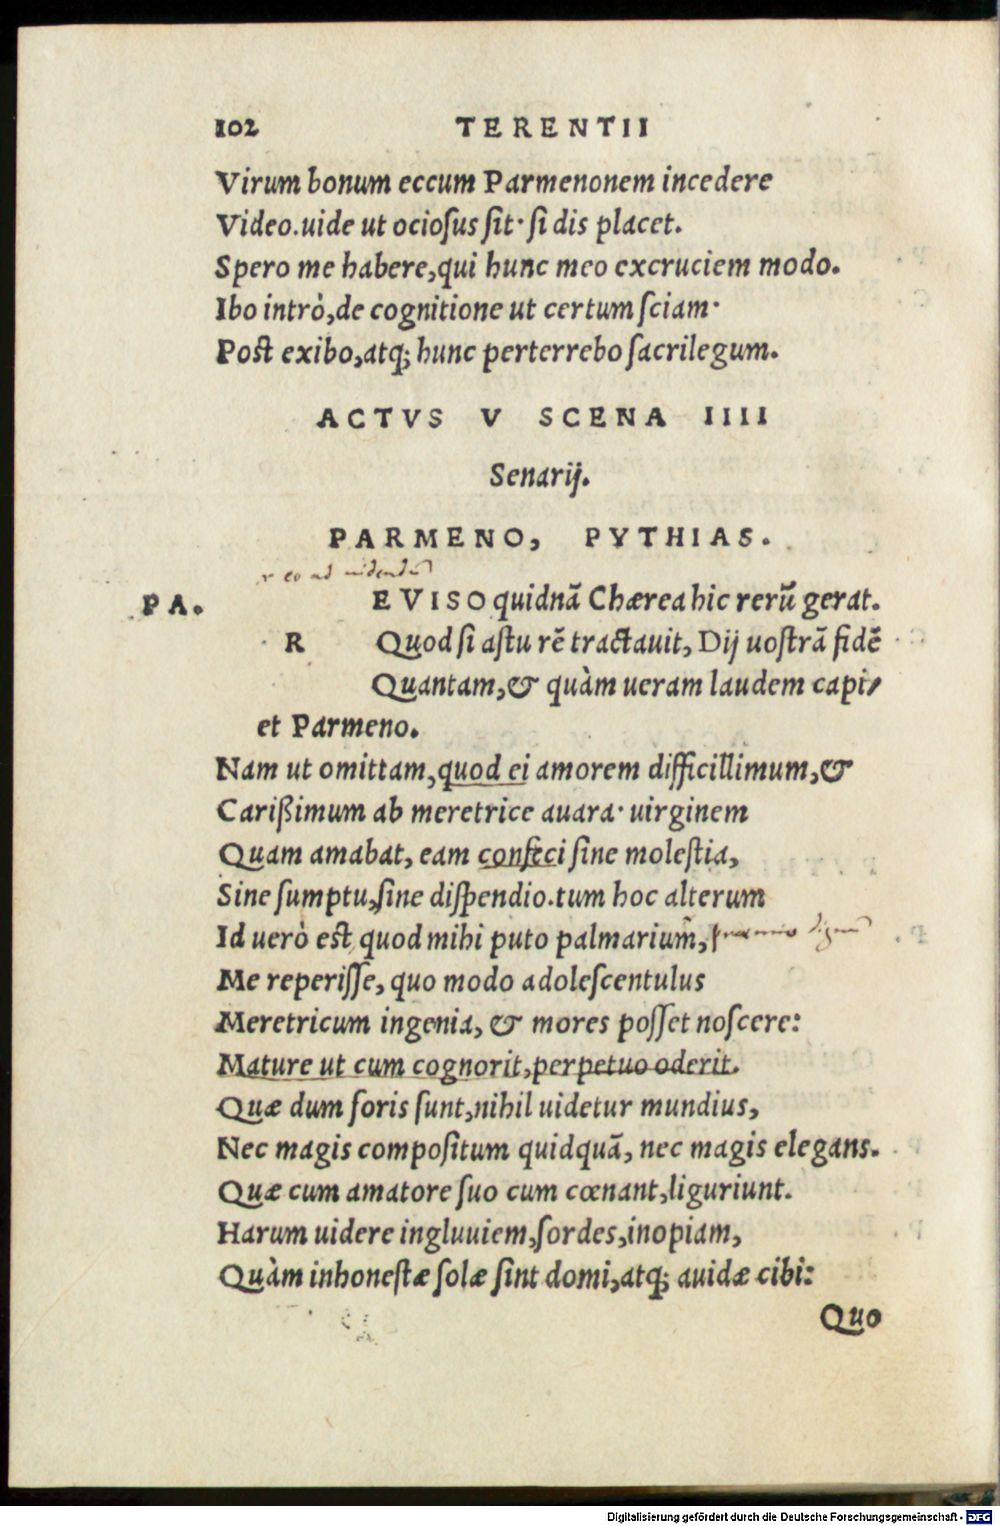 102 TERENTII
Virum bonum eccum Parmenonem incedere
Video.uide ut ocioſus ſit· ſi dis placet.
Spero me habere,qui hunc meo excruciem modo.
Ibo intrò,de cognitione ut certum ſciam·
Post exibo,atq; hunc perterrebo ſacrilegum.
ACTVS V SCENA IIII
Senarij.
PARMENO, PYTHIAS.
eo ad uidendū
PA. EVISO quidnā Chærea hic rerū gerat.
R Quod ſi aſtu rē tractauit, Dij uoſtrā fidē
Quantam,& quàm ueram laudem capi/
et Parmeno.
Nam ut omittam,quod ei amorem difficillimum,&
Carißimum ab meretrice auara· uirginem
Quam amabat, eam confeci ſine moleſtia,
Sine ſumptu,ſine diſpendio.tum hoc alterum
Id uerò est, quod mihi puto palmarium, praemio dignum
Me reperiſſe, quo modo adoleſcentulus
Meretricum ingenia, & mores poſſet noſcere:
Mature ut cum cognorit,perpetuo oderit.
Quæ dum foris ſunt,nihil uidetur mundius,
Nec magis compoſitum quidquā, nec magis elegans.
Quæ cum amatore ſuo cum cœnant,liguriunt.
Harum uidere ingluuiem,ſordes,inopiam,
Quàm inhoneſtæ ſolæ ſint domi,atq; auidæ cibi:
Quo
Digitalisierung gefördert durch die Deutsche Forschungsgemeinschaft - DFG